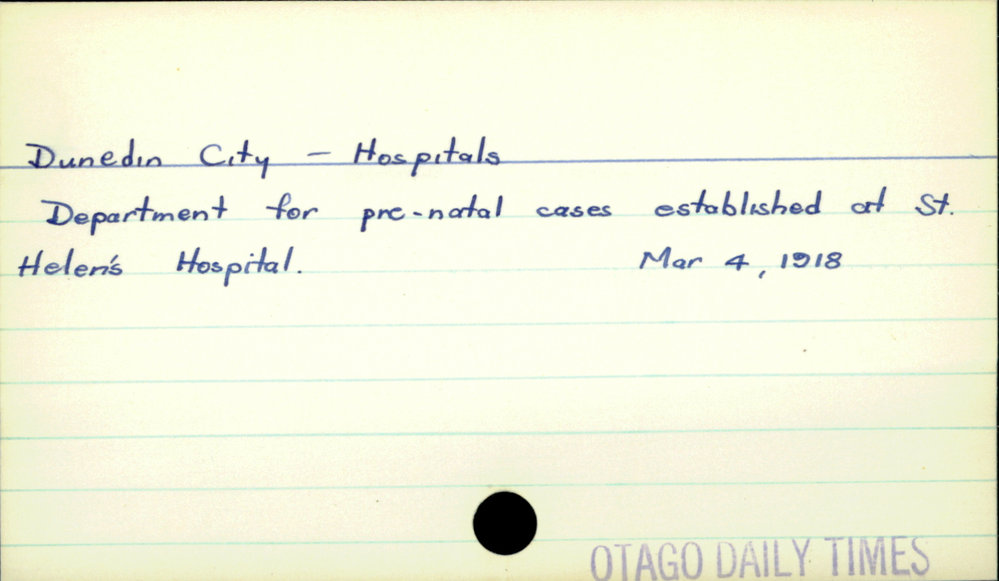 Dunedin City – Hospitals
Department for pre-natal cases established at St.
Helen's Hospital. Mar 4, 1918
OTAGO DAILY TIMES